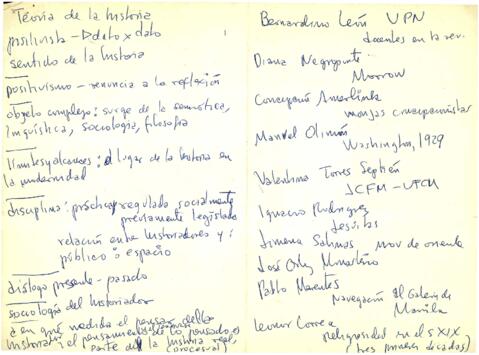 Teoría de la historia
positivista - dato x dato
sentido de la historia
positivismo - renuncia a la reflexión
objeto complejo: surge de la semiótica,
lingüística, sociología, filosofía
límites y alcances: el lugar de la historia en
la modernidad
disciplina: práctica regulada socialmente
previamente legislado
relación entre historiadores y
público o espacio
diálogo presente - pasado
sociología del historiador
a en qué medida el pensar del
historiador, el pensamiento de lo pensado, es
parte de la historia real
(procesual)
Bernardino León UPN
docentes en la rev.
Diana
Morrow
Concepción Amerlinck
monjas concepcionistas
Manuel Olimón
Washington, 1929
Valentina Torres Septién
JCFM - UFCM
Ignacio Rodríguez
Jesuitas
Jimena Salinas mov de oriente
José Ortiz Monasterio
Pablo
Navegación el Galeón de
Manila
Leonor Correa
peligrosidad en el s XIX
(tres primeras décadas)